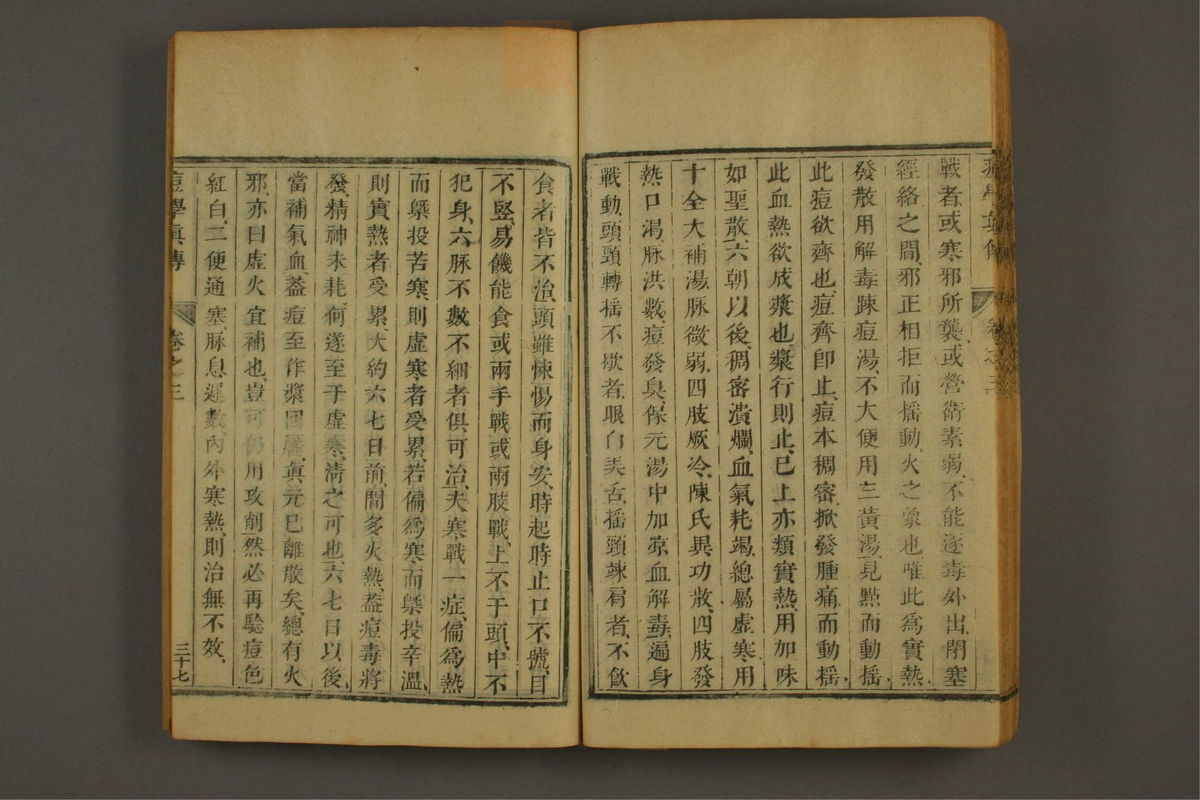 戰者、或寒邪所襲、或營衛素弱、不能逐毒外出、閉塞
經絡之間、邪正相拒而揺動、火之象也、唯此為實熱
發散用解毒踈痘湯、不大便用三黃湯、見㸃而動揺
此痘欲齊也、痘齊即止、痘本稠密、掀發腫痛而動揺、
此血熱欲成漿也、漿行則止、已上亦類實熱、用加味
如聖散、六朝以後、稠密潰爛、血氣耗竭、總屬虛寒、用
十全大補湯、脉微弱、四肢厥冷、陳氏異功散、四肢發
熱口渴、脉洪數、痘發臭、保元湯中加凉血解毒、遍身
戰動、頭頸轉揺不歇者、眼白弄舌、揺頸竦肩者、不飲
食者皆不治、頭雖悚惕而身安、時起時止、口不號、目
不竪、易饑能食、或兩手戰、或兩肢戰、上不于頭、中不
犯身、六脉不數不細者、俱可治、夫寒戰一症、偏為熱
而槩投苦寒、則虛寒者受累、若偏為寒而槩投辛溫、
則實熱者受累、大約六七日前、間多火熱、葢痘毒將
發、精神未耗、何遂至于虛寒、清之可也、六七日以後、
當補氣血、葢痘至作漿囘靨、真元已離散矣、總有火
邪、亦曰虛火、宜補也、豈可仍用攻削、然必再騐痘色
紅白、二便通塞、脉息遲數、內外寒熱、則治無不效、
痘學真傳
卷之三
三十七